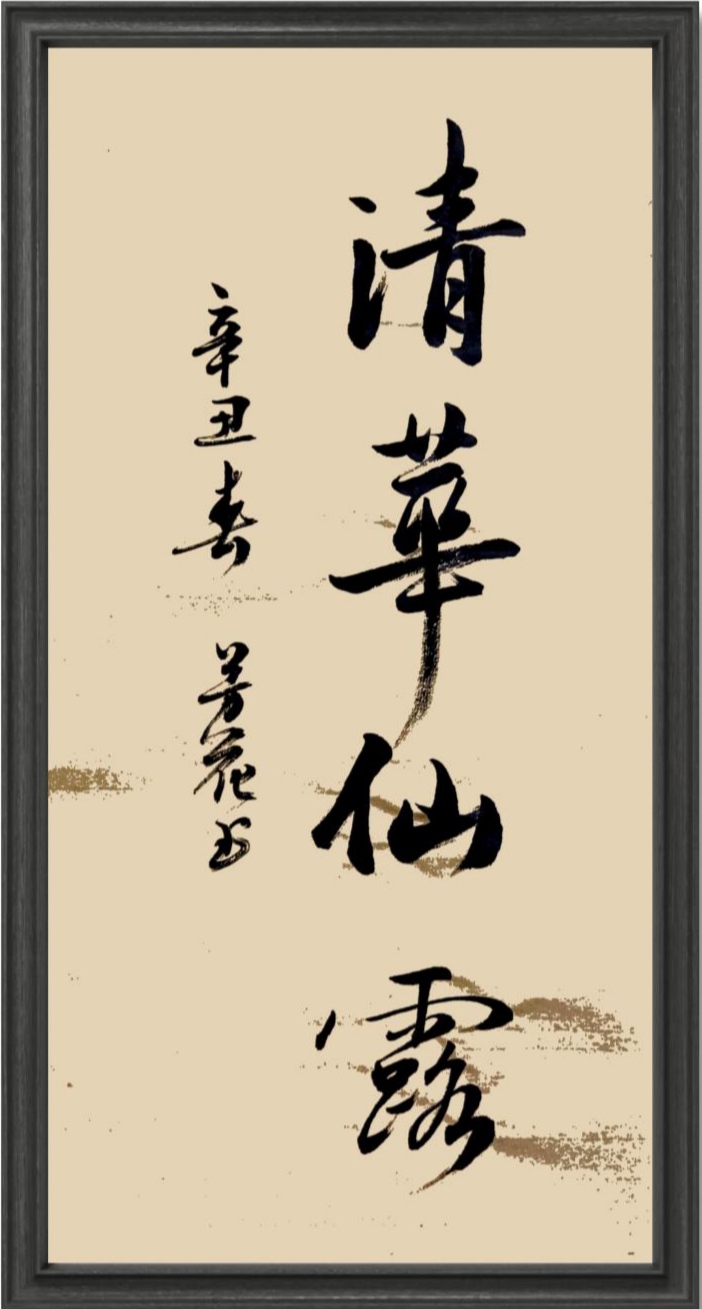 清華仙露
辛丑春 芳花书